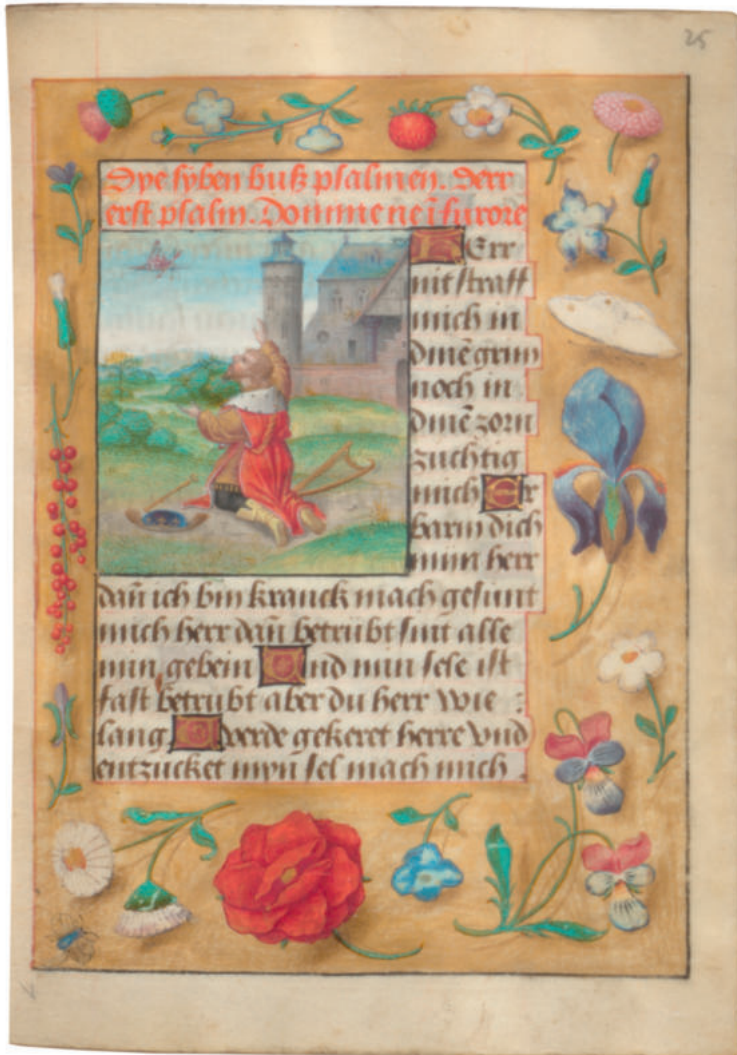 25
Dye syben buß psalmen. Derr
erst psalm. Domine ne ī furore
HErr
nit straff
mich in
dinē grim
noch in
dinē zorn
zuchtig
mich Er
barm dich
mym herr
dañ ich bin kranck mach gesunt
mich herr dañ betrubt sint alle
min gebein Und min sele ist
fast betrubt aber du herr wie :
lang Woerde gekeret herre vnd
entzucket myñ sel mach mich